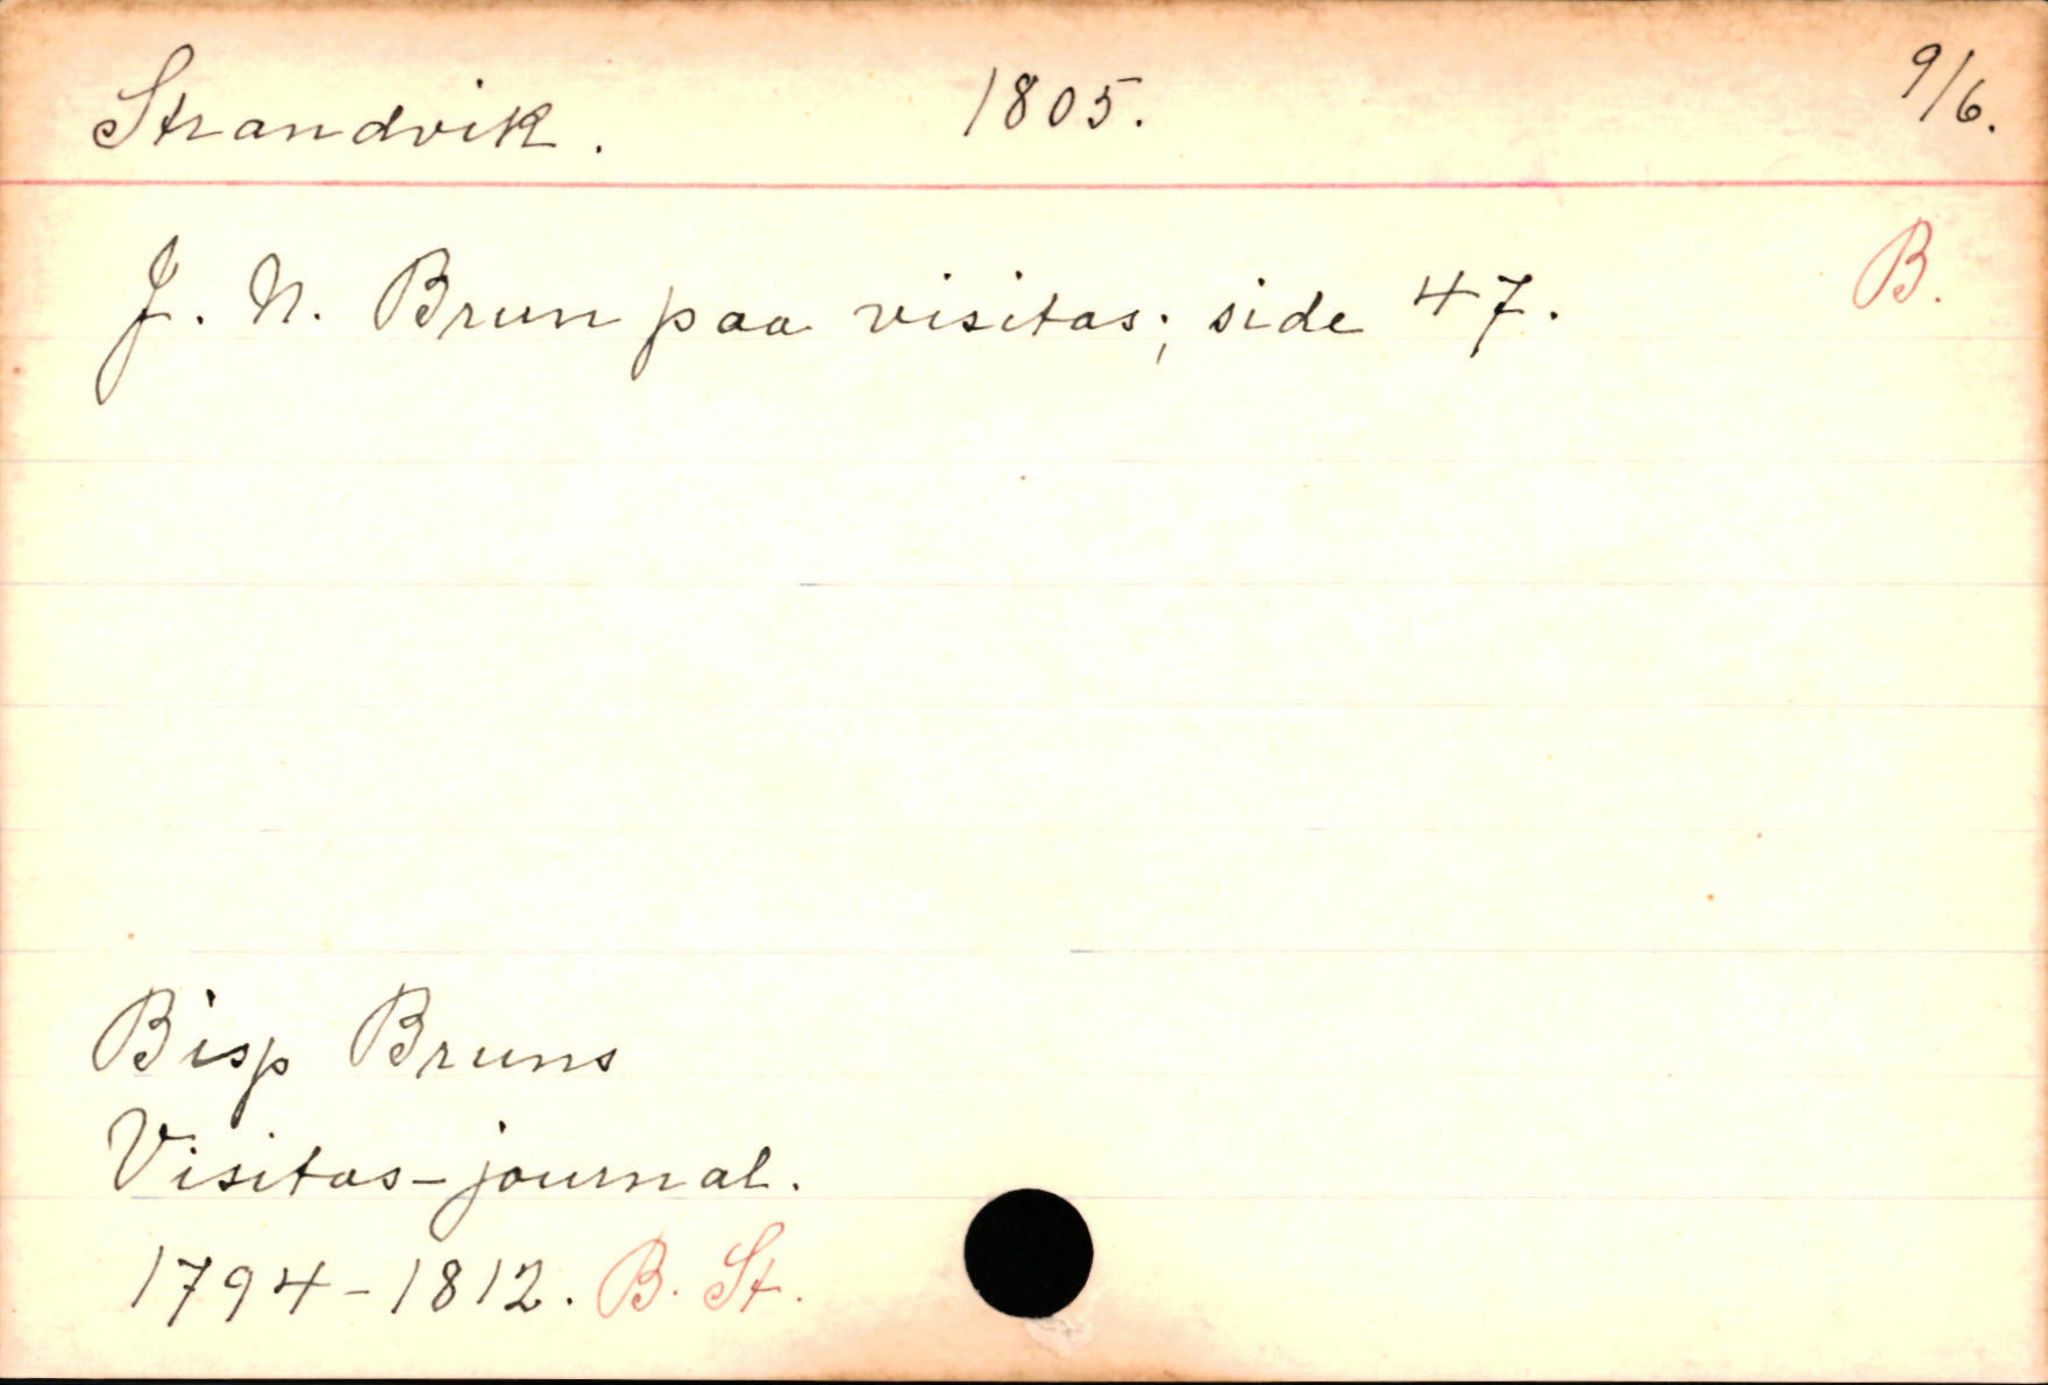 Strandvik. 1805. 9/6.
J. N. Brun paa visitas; side 47. B.
Bisp Bruns
Visitas-journal.
1794-1812. B. St.